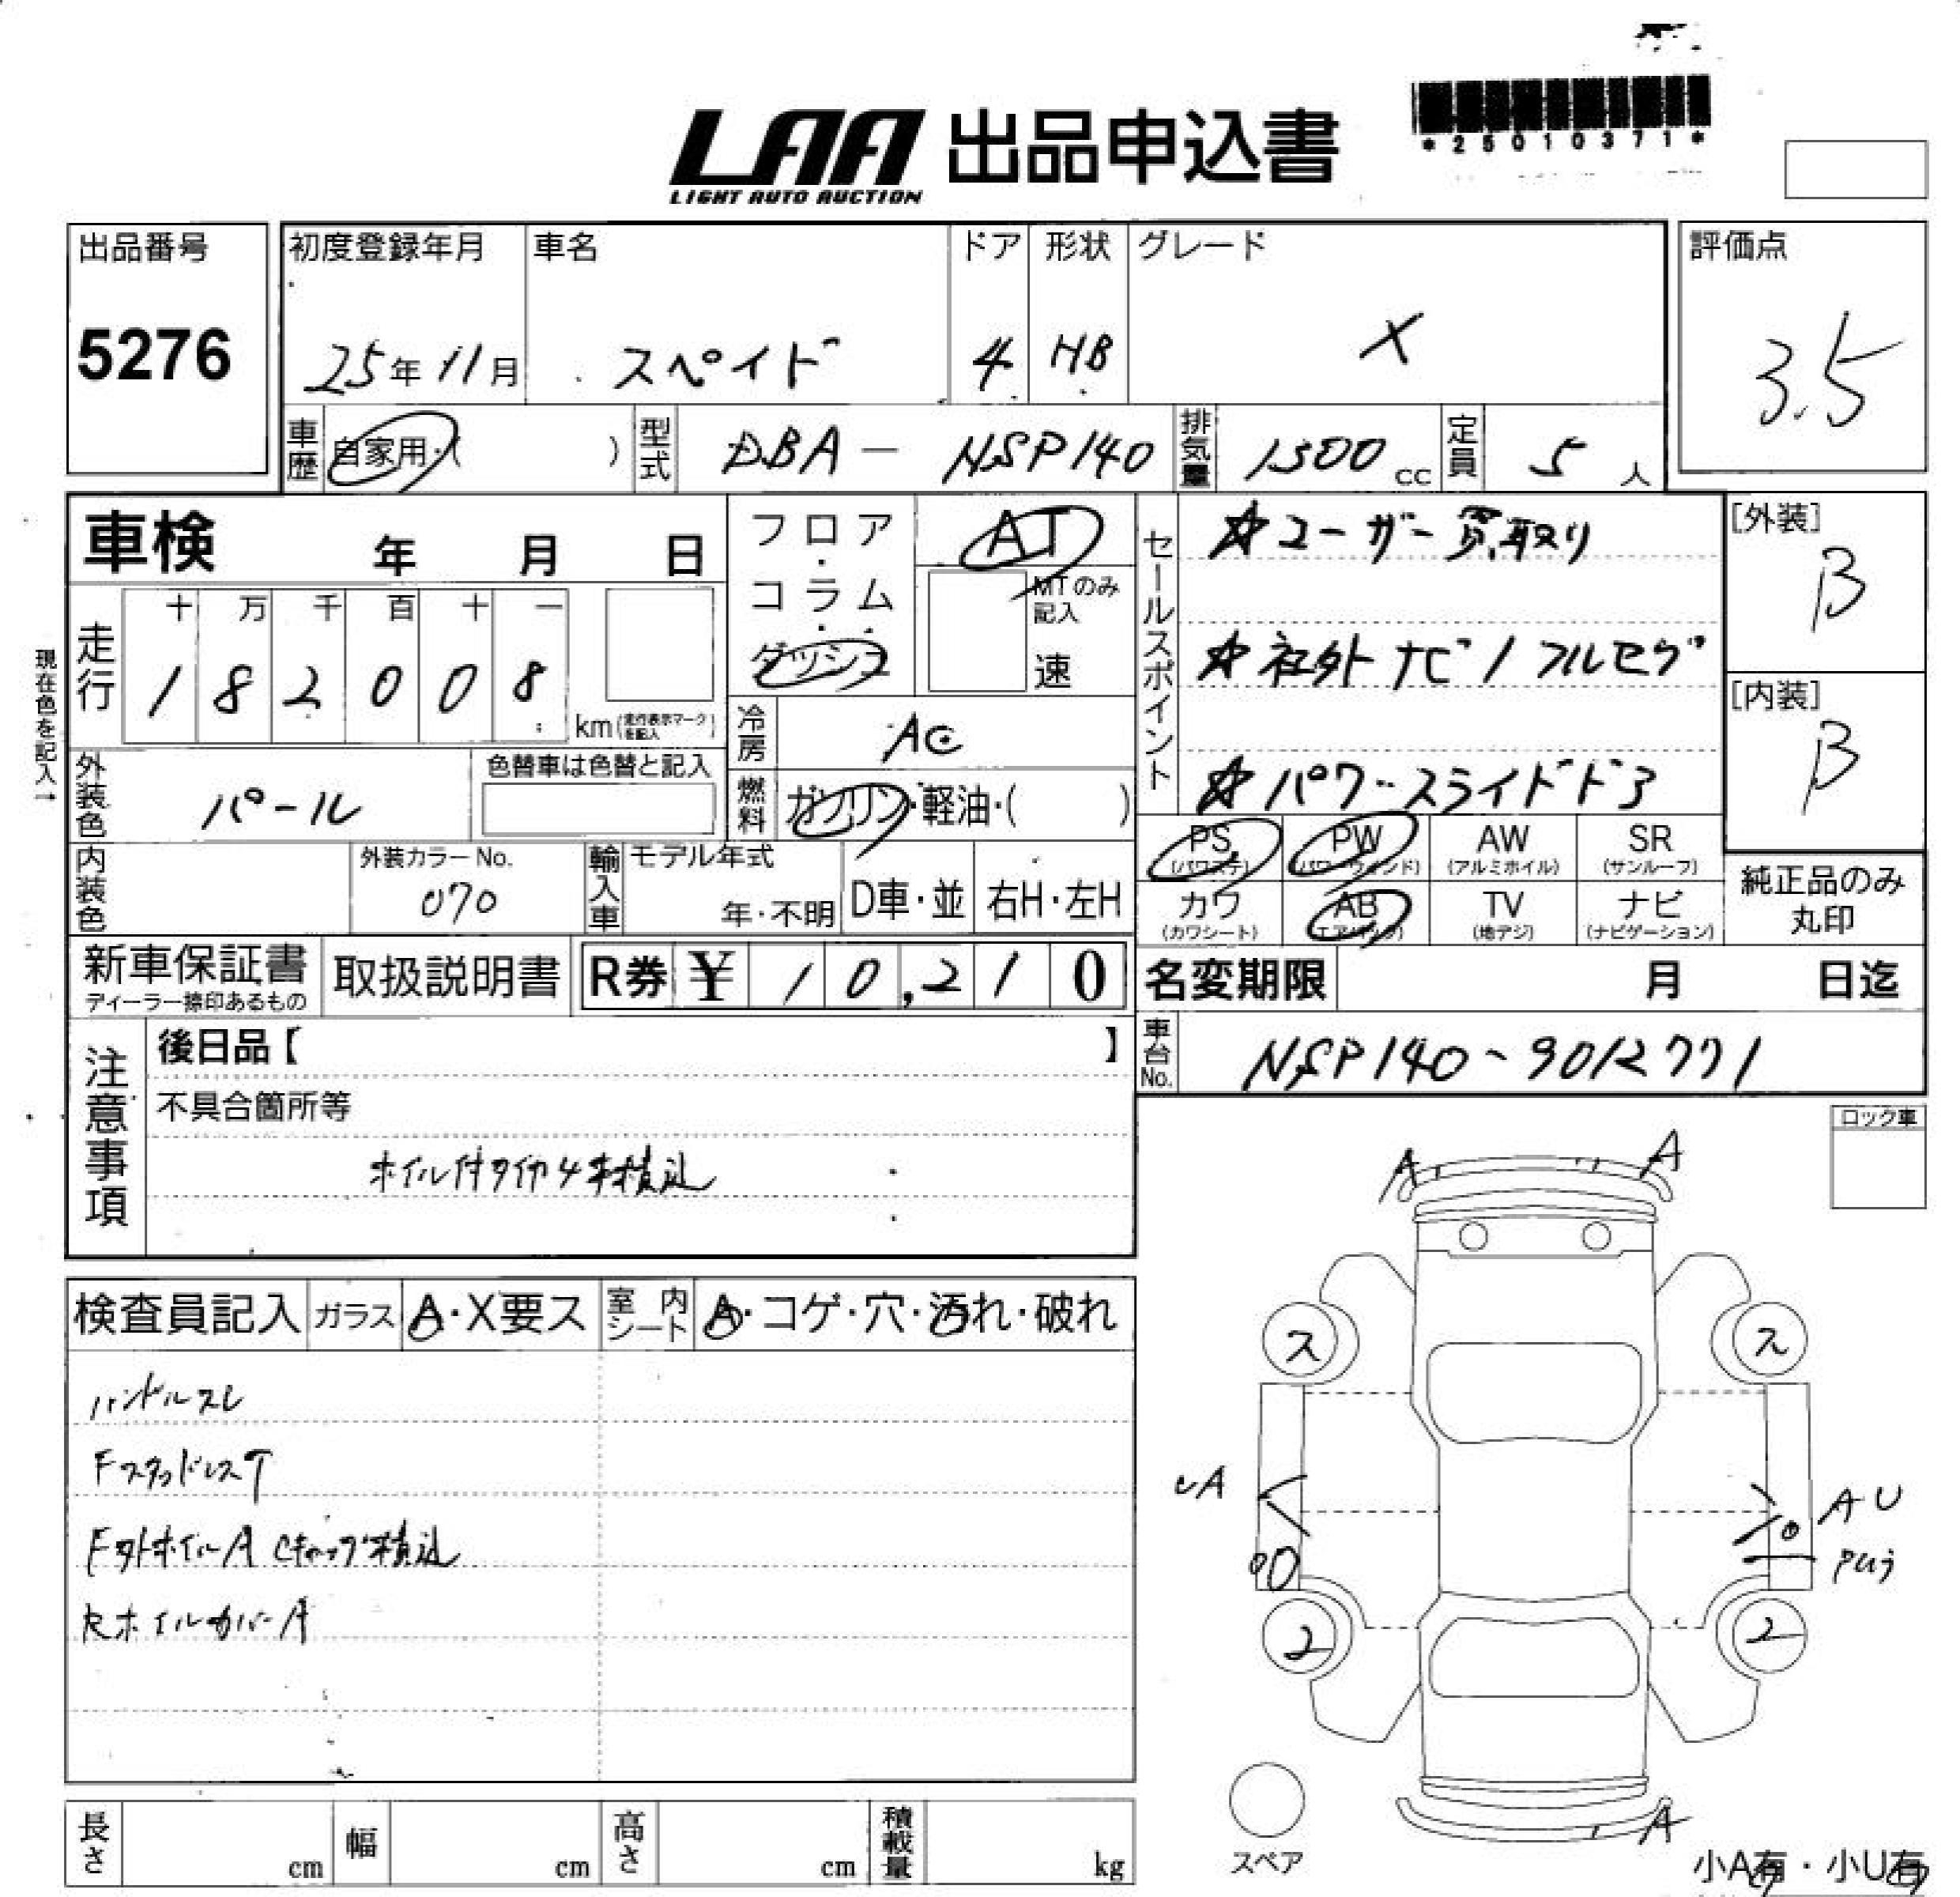 LAA 出品申込書
LIGHT AUTO AUCTION
*25010371*
出品番号
5276
初度登録年月
25年11月
車名
スペイド
ドア
4
形状
HB
グレード
X
評価点
3.5
車歴
自家用・( )
型式
DBA － NSP140
排気量
1500cc
定員
5人
車検 年 月 日
走行
十 万 千 百 十 一
1 8 2 0 0 8
km(走行表示マークを記入)
現在色を記入→
外装色
パール
色替車は色替と記入
内装色
外装カラーNo.
070
輸入車
モデル年式
年・不明
D車・並
右H・左H
フロア・コラム・ダッシュ
AT
MTのみ記入
速
冷房
AC
燃料
ガソリン・軽油・( )
セールスポイント
☆ユーザー買取り
☆社外ナビ/フルセグ
☆パワースライドドア
[外装]
B
[内装]
B
PS (パワステ)
PW (パワーウインド)
AW (アルミホイル)
SR (サンルーフ)
カワ (カワシート)
AB (エアバック)
TV (地デジ)
ナビ (ナビゲーション)
純正品のみ丸印
新車保証書
ディーラー捺印あるもの
取扱説明書
R券 ¥ 10,210
名変期限 月 日迄
車台No.
NSP140-9012771
注意事項
後日品【 】
不具合箇所等
ホイル付タイヤ4本積込
ロック車
検査員記入
ガラス
A・X要ス
室内シート
A・コゲ・穴・汚れ・破れ
ハンドルスレ
FスタッドレスT
F外ホイルA Cキャップ積込
RホイルカバーA
A A
ス ス
A
AU
2 2
A
スペア
小A有・小U有
長さ cm
幅 cm
高さ cm
積載量 kg